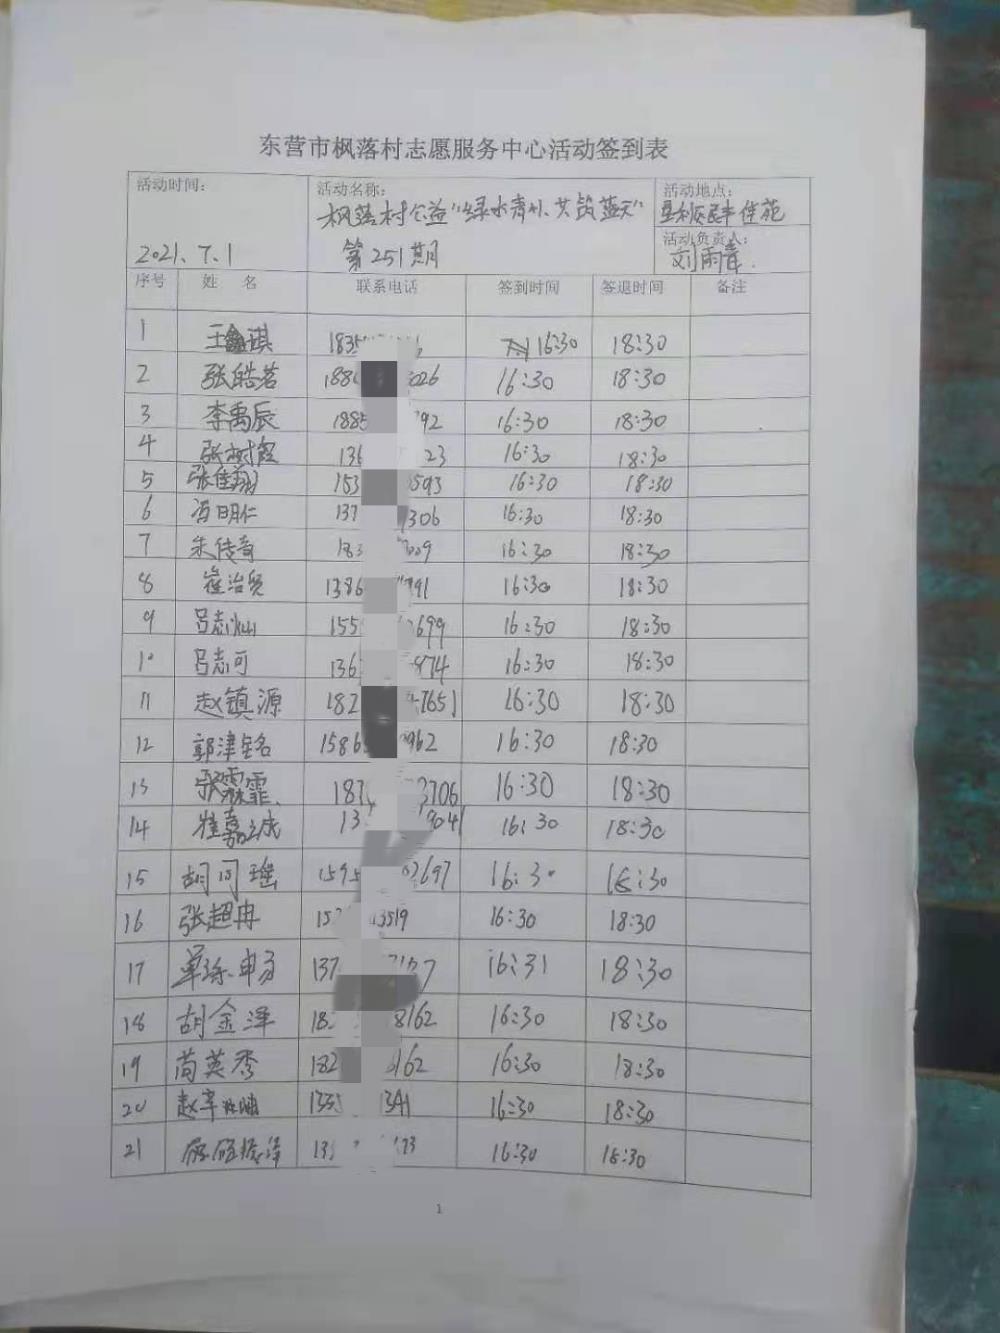 东营市枫落村志愿服务中心活动签到表
活动时间： 活动名称： 活动地点：
枫落村公益"绿水青山、共筑蓝天" 垦利区民丰佳苑
活动负责人：
2021.7.1 第251期 刘雨青.
序号 姓 名 联系电话 签到时间 签退时间 备注
1 王鑫琪 1835 16:30 18:30
2 张皓茗 188 026 16:30 18:30
3 李禹辰 1885 92 16:30 18:30
4 张树 136 23 16:30 18:30
5 张佳翔 153 593 16:30 18:30
6 冯明仁 137 306 16:30 18:30
7 朱传奇 183 009 16:30 18:30
8 崔治贤 1386 91 16:30 18:30
9 吕志灿 155 699 16:30 18:30
10 吕志可 136 874 16:30 18:30
11 赵镇源 182 7651 16:30 18:30
12 郭津铭 1586 962 16:30 18:30
13 张霖霏 187 3706 16:30 18:30
14 崔嘉成 13 904 16:30 18:30
15 胡可瑶 1595 2697 16:30 18:30
16 张超冉 15 3519 16:30 18:30
17 单 137 7 16:31 18:30
18 胡金泽 182 8162 16:30 18:30
19 苘英秀 182 162 16:30 18:30
20 赵 133 1341 16:30 18:30
21 13 73 16:30 18:30
1